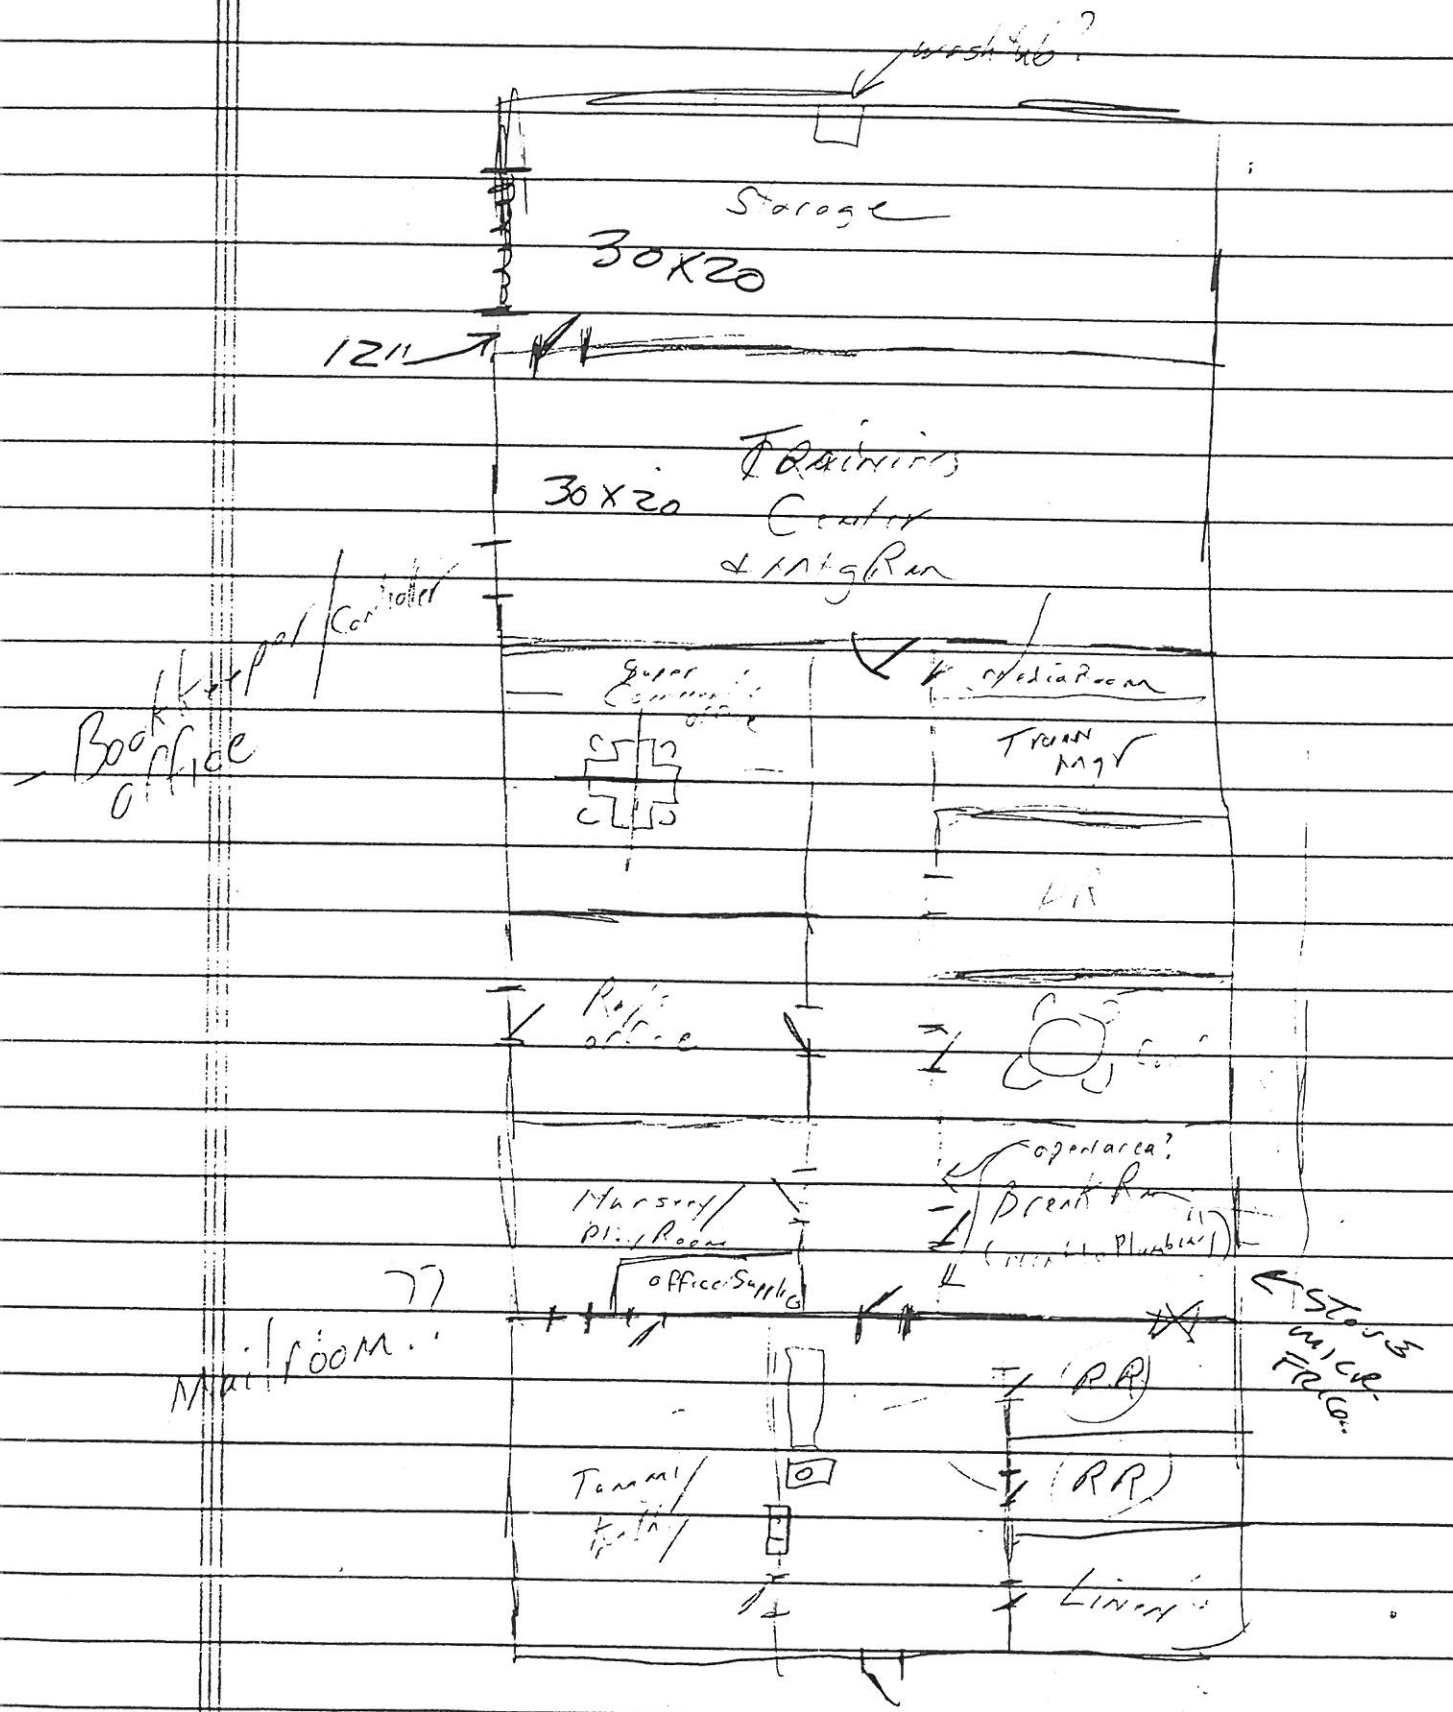 wash tub?
Storage
30x20
12"
Training
30x20
Center
& MtgRm
Bookkeeper/Controller
office
Super
office
MediaRoom
Train
Mgr
HR
office
Conf
open area?
Nursery/
Play Room
Break Rm
Plumbing)
office Supplies
??
Mailroom
Stove
micr.
FRIG.
(RR)
(RR)
Tammi/
Kathy
Linen's